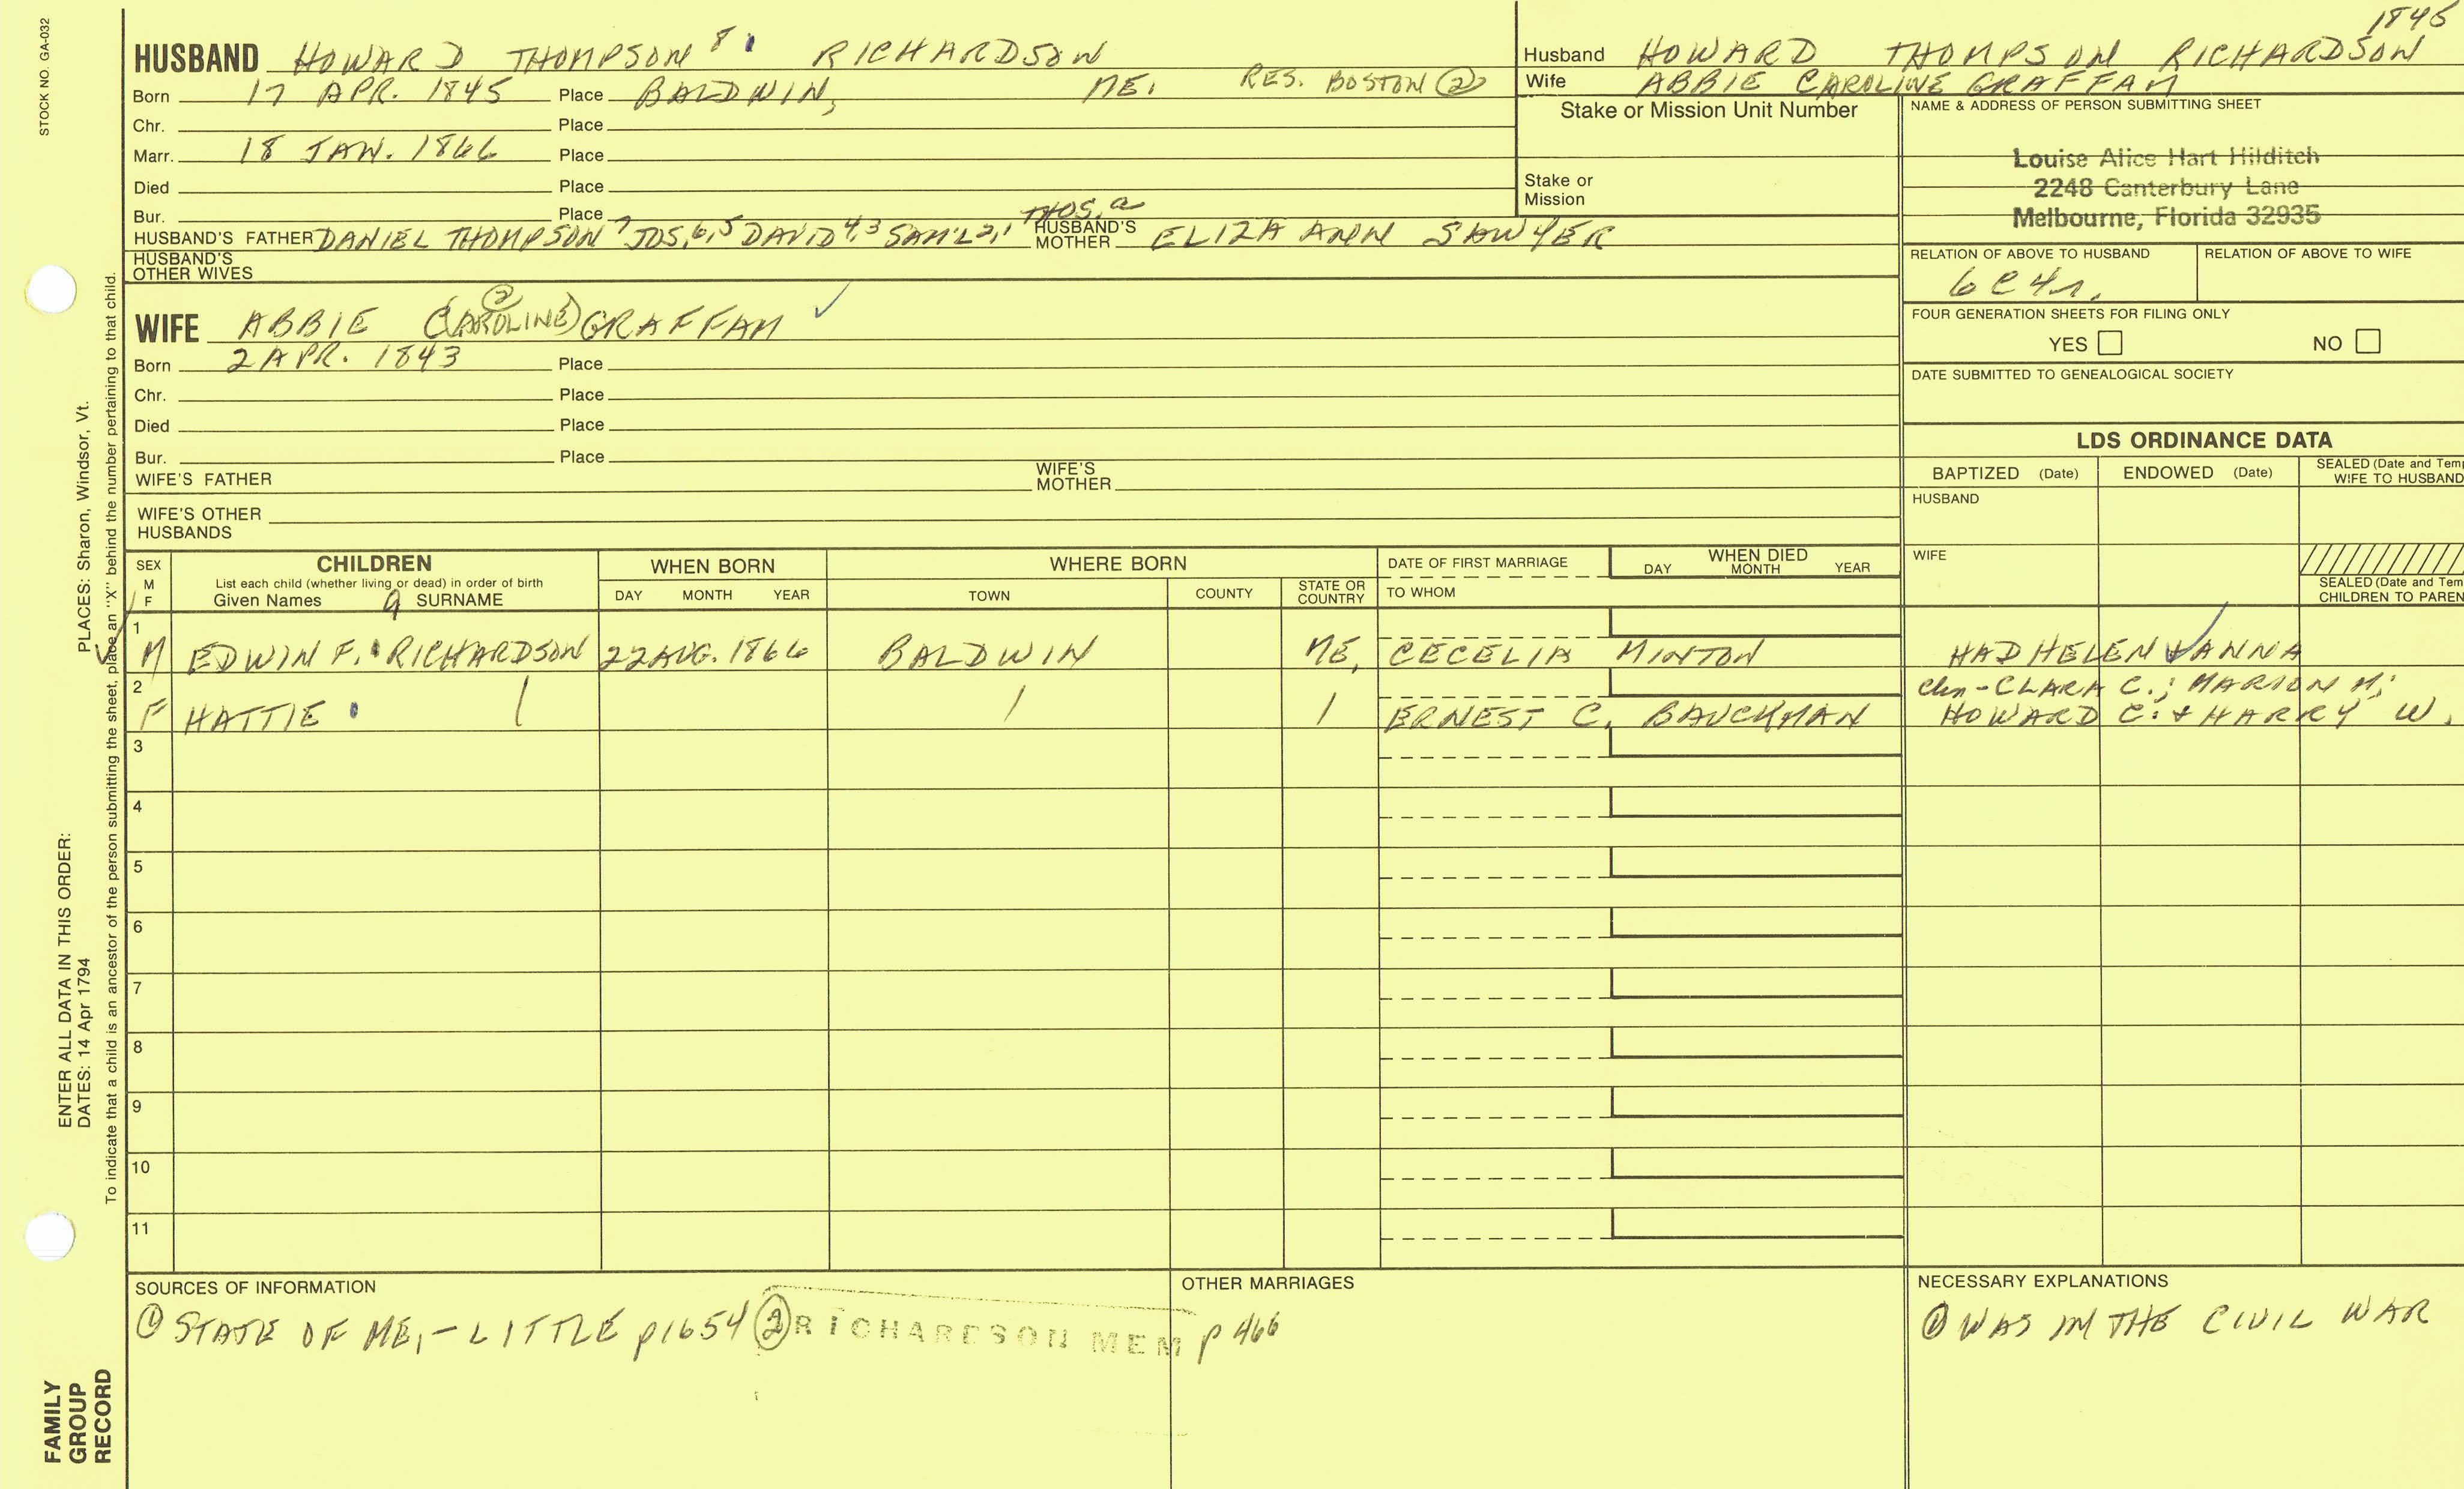 STOCK NO. GA-032
1845
HUSBAND HOWARD THOMPSON 8 RICHARDSON
Born 17 APR. 1845 Place BALDWIN, ME. RES. BOSTON (2)
Chr. Place
Marr. 18 JAN. 1866 Place
Died Place
Bur. Place
THOS. a
HUSBAND'S FATHER DANIEL THOMPSON 7 JOS. 6,5 DAVID 4,3 SAM'L 2,1 HUSBAND'S MOTHER ELIZA ANN SAWYER
HUSBAND'S OTHER WIVES
Husband HOWARD THOMPSON RICHARDSON
Wife ABBIE CAROLINE GRAFFAM
Stake or Mission Unit Number
Stake or Mission
NAME & ADDRESS OF PERSON SUBMITTING SHEET
Louise Alice Hart Hilditch
2248 Canterbury Lane
Melbourne, Florida 32935
RELATION OF ABOVE TO HUSBAND RELATION OF ABOVE TO WIFE
6C4r.
FOUR GENERATION SHEETS FOR FILING ONLY
YES NO
DATE SUBMITTED TO GENEALOGICAL SOCIETY
WIFE ABBIE (CAROLINE) (2) GRAFFAM
Born 2 APR. 1843 Place
Chr. Place
Died Place
Bur. Place
WIFE'S FATHER WIFE'S MOTHER
WIFE'S OTHER HUSBANDS
LDS ORDINANCE DATA
BAPTIZED (Date) ENDOWED (Date) SEALED (Date and Tem WIFE TO HUSBAND
HUSBAND
WIFE
SEALED (Date and Tem CHILDREN TO PAREN
SEX M F
CHILDREN
List each child (whether living or dead) in order of birth
Given Names 9 SURNAME
WHEN BORN
DAY MONTH YEAR
WHERE BORN
TOWN COUNTY STATE OR COUNTRY
DATE OF FIRST MARRIAGE
TO WHOM
WHEN DIED
DAY MONTH YEAR
1 M EDWIN F. RICHARDSON 22 AUG. 1866 BALDWIN ME, CECELIA MINTON HAD HELEN & ANNA
2 F HATTIE ERNEST C. BAUCKMAN chn - CLARA C.; MARION M;
HOWARD C. & HARRY W.
3
4
5
6
7
8
9
10
11
SOURCES OF INFORMATION
(1) STATE OF ME, - LITTLE p1654 (2) RICHARDSON MEM p 466
OTHER MARRIAGES
NECESSARY EXPLANATIONS
(1) WAS IN THE CIVIL WAR
ENTER ALL DATA IN THIS ORDER:
DATES: 14 Apr 1794
PLACES: Sharon, Windsor, Vt.
To indicate that a child is an ancestor of the person submitting the sheet, place an "X" behind the number pertaining to that child.
FAMILY
GROUP
RECORD